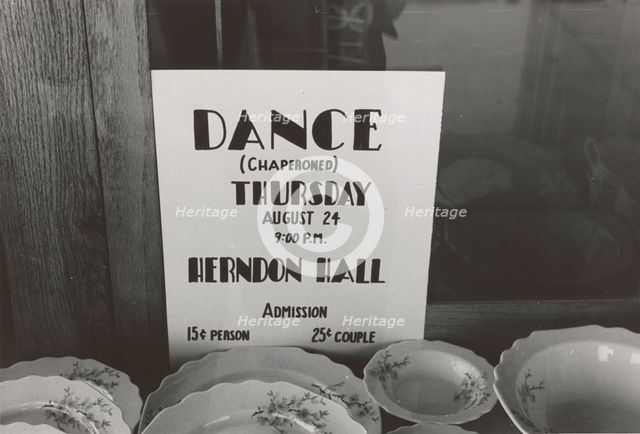 DANCE
(CHAPERONED)
THURSDAY
AUGUST 24
9:00 P.M.
HERNDON HALL
ADMISSION
15¢ PERSON 25¢ COUPLE
Heritage Heritage
Heritage Heritage
Heritage Heritage
C